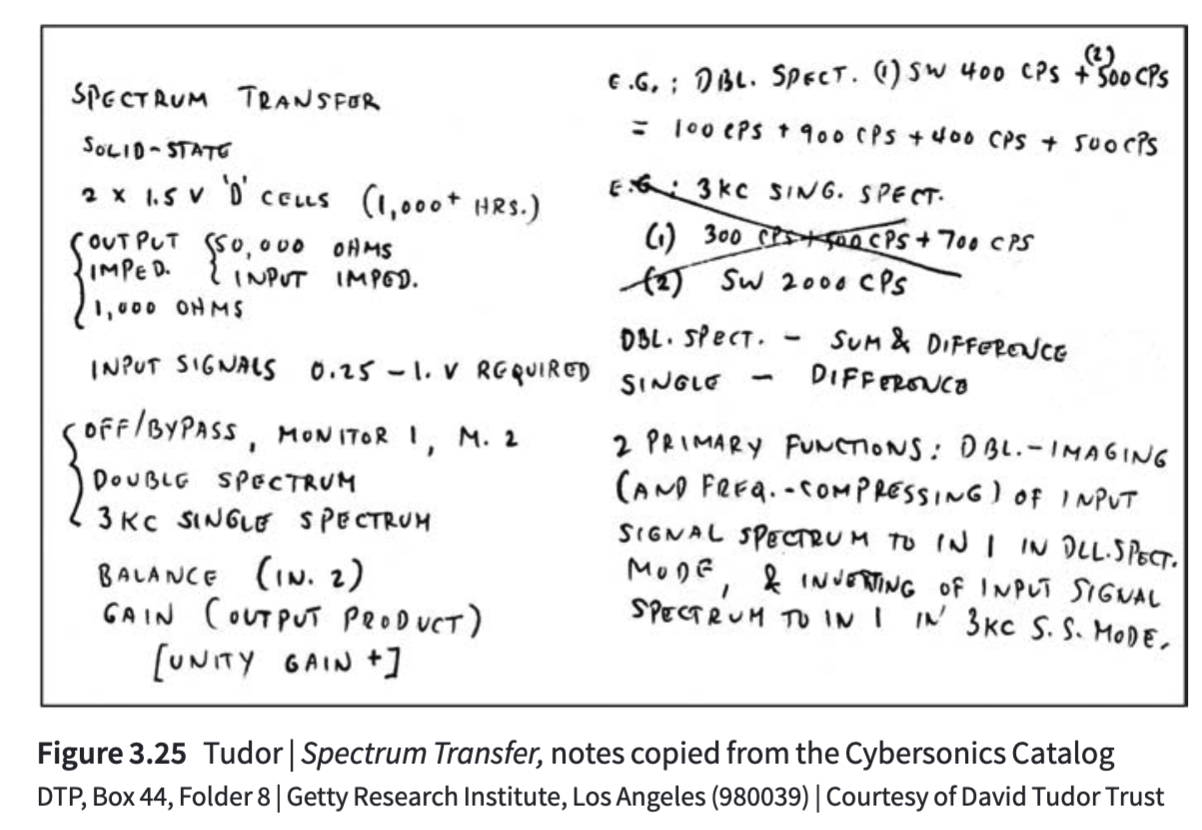 SPECTRUM TRANSFER
SOLID-STATE
2 X 1.5 V 'D' CELLS (1,000+ HRS.)
OUTPUT IMPED. 1,000 OHMS
50,000 OHMS INPUT IMPED.
INPUT SIGNALS 0.25 - 1. V REQUIRED
OFF/BYPASS, MONITOR 1, M. 2
DOUBLE SPECTRUM
3 KC SINGLE SPECTRUM
BALANCE (IN. 2)
GAIN (OUTPUT PRODUCT)
[UNITY GAIN +]
E.G.; DBL. SPECT. (1) SW 400 CPS + (2) 500 CPS
= 100 CPS + 900 CPS + 400 CPS + 500 CPS
E.G.; 3KC SING. SPECT.
(1) 300 CPS + 500 CPS + 700 CPS
(2) SW 2000 CPS
DBL. SPECT. - SUM & DIFFERENCE
SINGLE - DIFFERENCE
2 PRIMARY FUNCTIONS: DBL.-IMAGING
(AND FREQ.-COMPRESSING) OF INPUT
SIGNAL SPECTRUM TO IN 1 IN DLL.SPECT.
MODE, & INVERTING OF INPUT SIGNAL
SPECTRUM TO IN 1 IN 3KC S.S. MODE.
Figure 3.25 Tudor | Spectrum Transfer, notes copied from the Cybersonics Catalog
DTP, Box 44, Folder 8 | Getty Research Institute, Los Angeles (980039) | Courtesy of David Tudor Trust